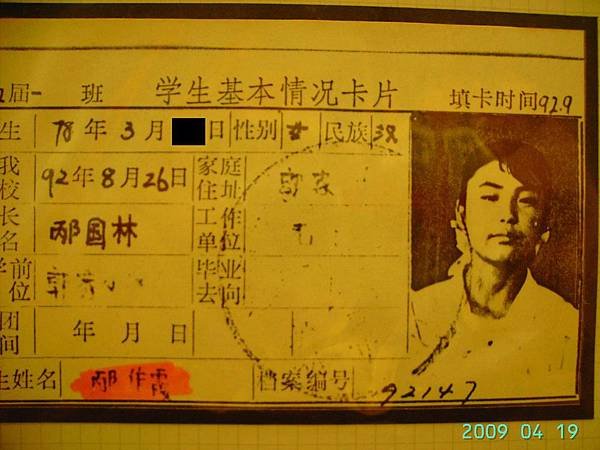 届一 班 学生基本情况卡片 填卡时间92.9
生 78年3月 日 性别 女 民族 汉
我校 92年8月26日 家庭住址 郭家
长名 邴国林 工作单位
学前位 毕业去向
团间 年 月 日
生姓名 邴作霞 档案编号 92147
2009 04 19